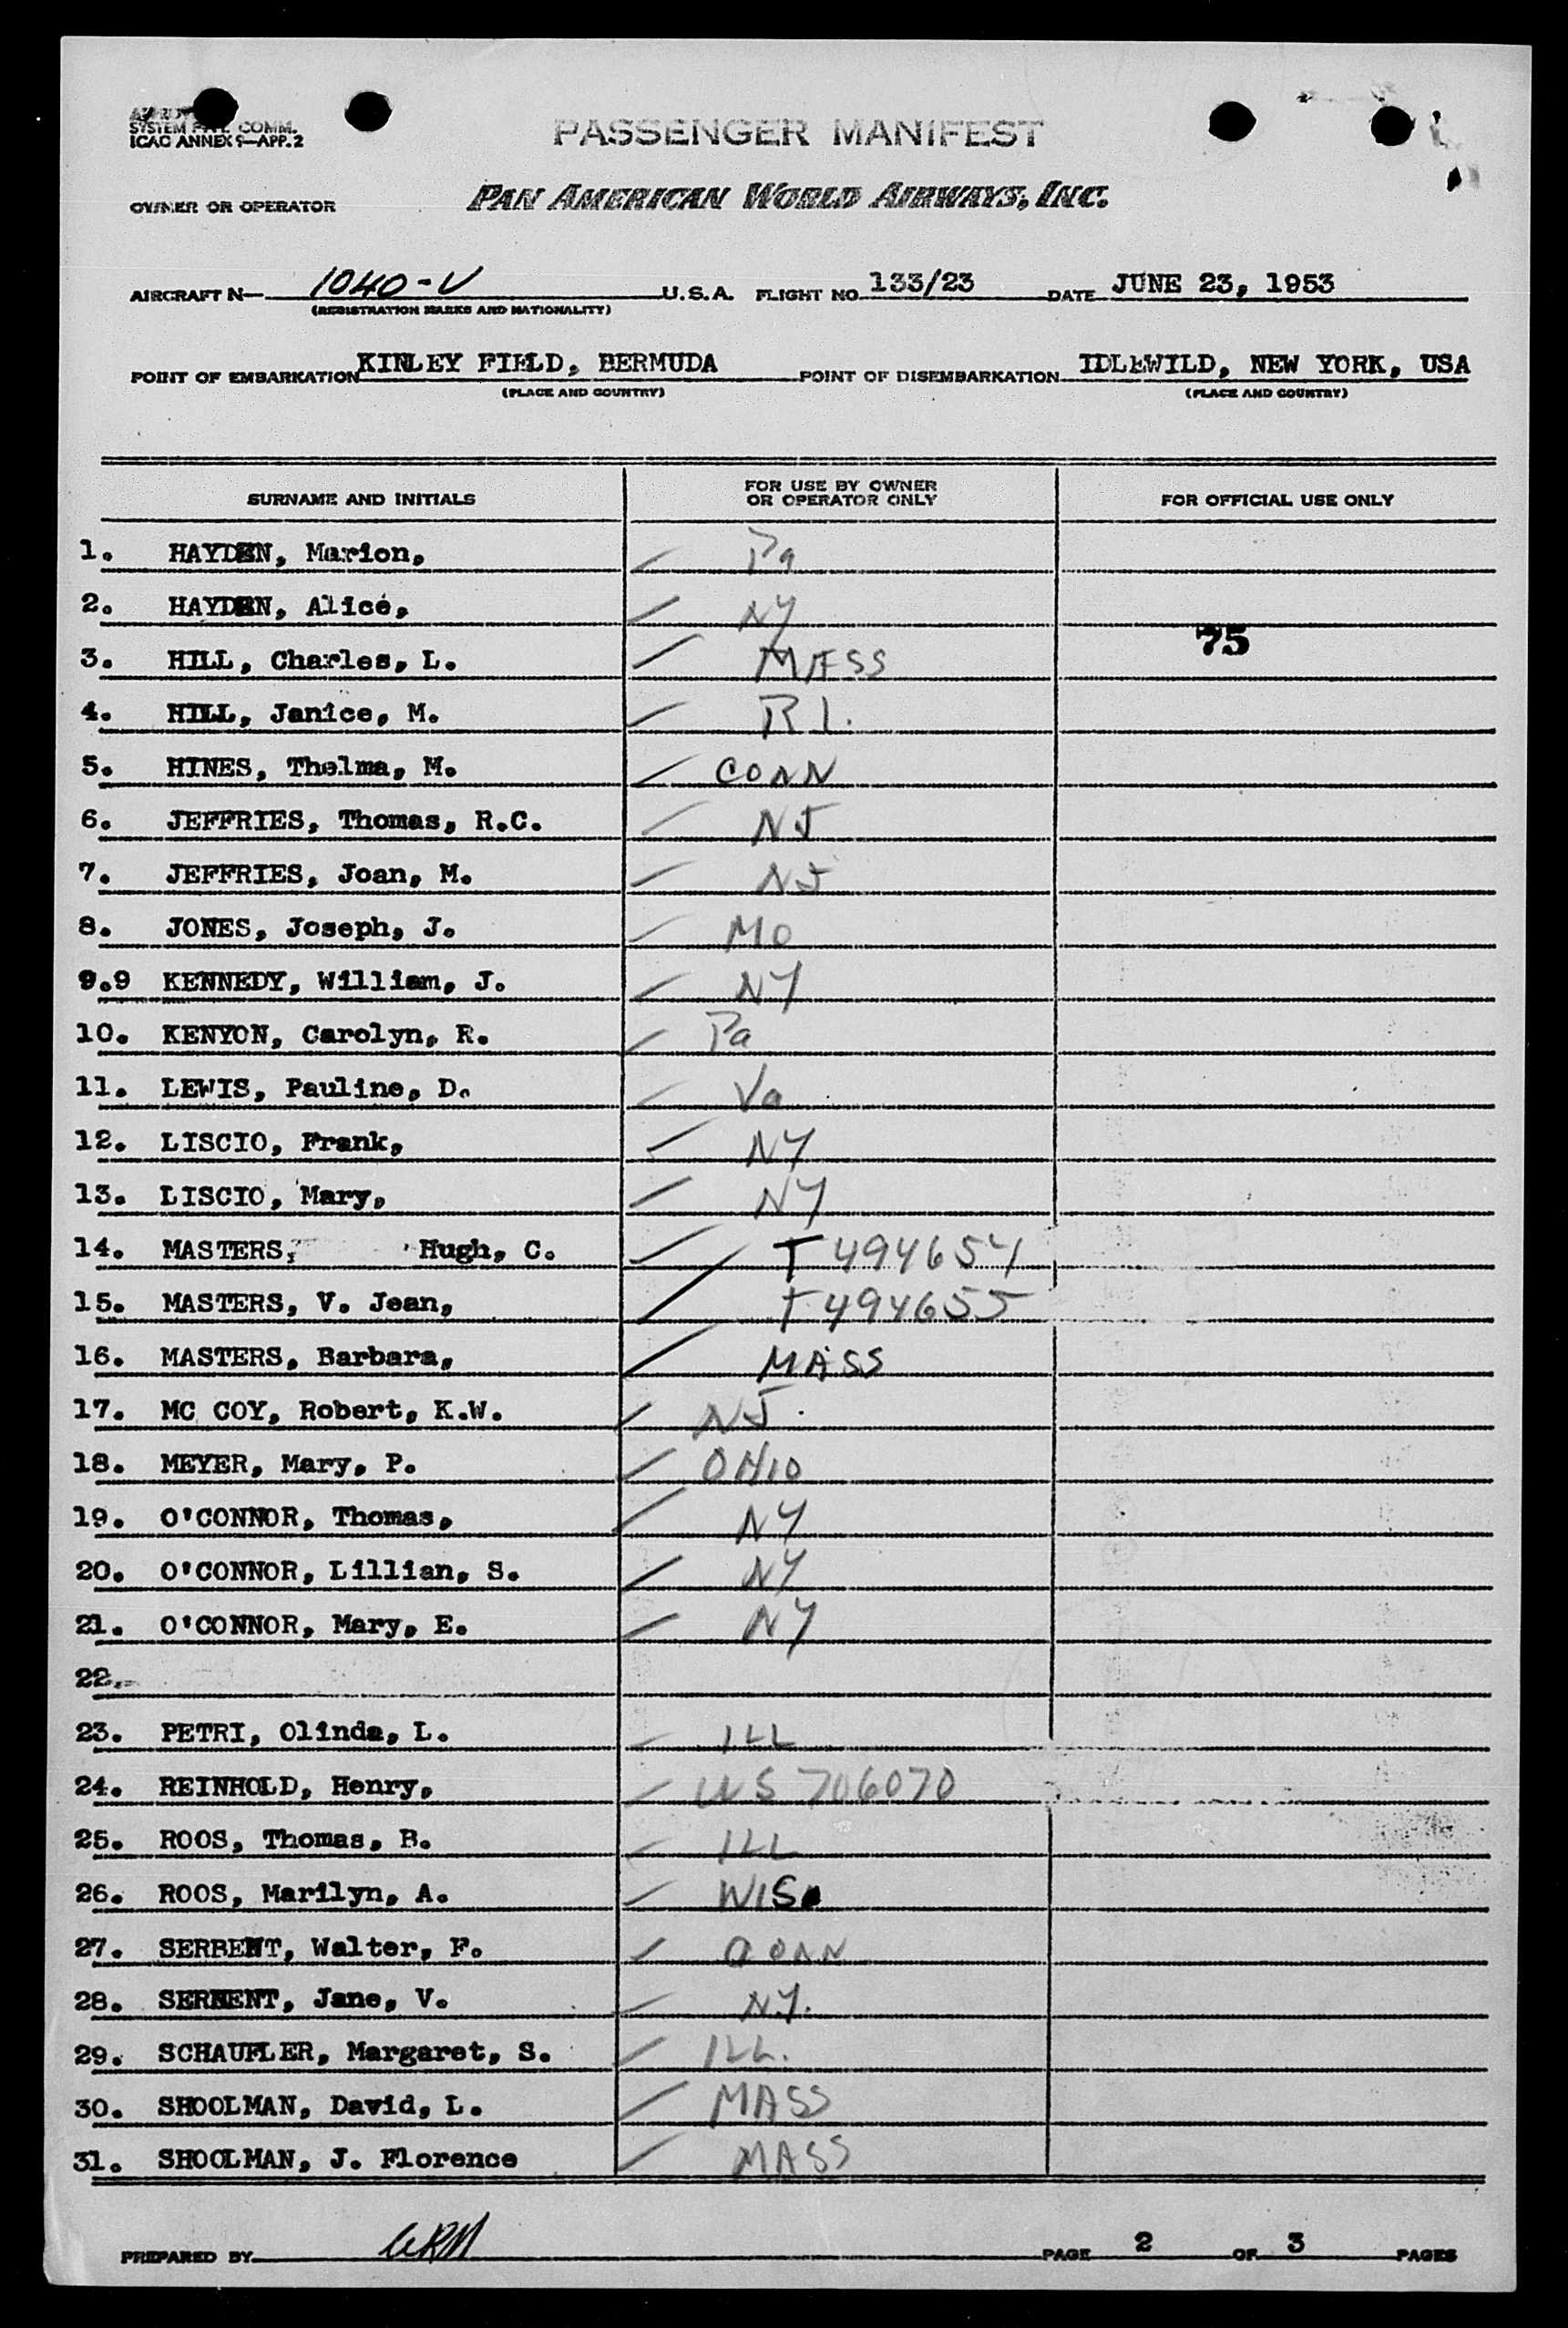 SYSTEM COMM.
ICAO ANNEX 9—APP. 2
PASSENGER MANIFEST
OWNER OR OPERATOR PAN AMERICAN WORLD AIRWAYS, INC.
AIRCRAFT N— 1040-V U.S.A. FLIGHT NO. 133/23 DATE JUNE 23, 1953
(REGISTRATION MARKS AND NATIONALITY)
POINT OF EMBARKATION KINLEY FIELD, BERMUDA POINT OF DISEMBARKATION IDLEWILD, NEW YORK, USA
(PLACE AND COUNTRY) (PLACE AND COUNTRY)
SURNAME AND INITIALS FOR USE BY OWNER OR OPERATOR ONLY FOR OFFICIAL USE ONLY
1. HAYDEN, Marion, Pa
2. HAYDEN, Alice, NY
75
3. HILL, Charles, L. MASS
4. HILL, Janice, M. R I.
5. HINES, Thelma, M. CONN
6. JEFFRIES, Thomas, R.C. NJ
7. JEFFRIES, Joan, M. NJ
8. JONES, Joseph, J. Mo
9.9 KENNEDY, William, J. NY
10. KENYON, Carolyn, R. Pa
11. LEWIS, Pauline, D. Va
12. LISCIO, Frank, NY
13. LISCIO, Mary, NY
14. MASTERS, Hugh, C. T 494654
15. MASTERS, V. Jean, T 494655
16. MASTERS, Barbara, MASS
17. MC COY, Robert, K.W. NJ.
18. MEYER, Mary, P. OHIO
19. O'CONNOR, Thomas, NY
20. O'CONNOR, Lillian, S. NY
21. O'CONNOR, Mary, E. NY
22.
23. PETRI, Olinda, L. ILL
24. REINHOLD, Henry, US 706070
25. ROOS, Thomas, B. ILL
26. ROOS, Marilyn, A. WIS.
27. SERBENT, Walter, F. CONN
28. SERBENT, Jane, V. NY.
29. SCHAUFLER, Margaret, S. ILL.
30. SHOOLMAN, David, L. MASS
31. SHOOLMAN, J. Florence MASS
PREPARED BY PAGE 2 OF 3 PAGES